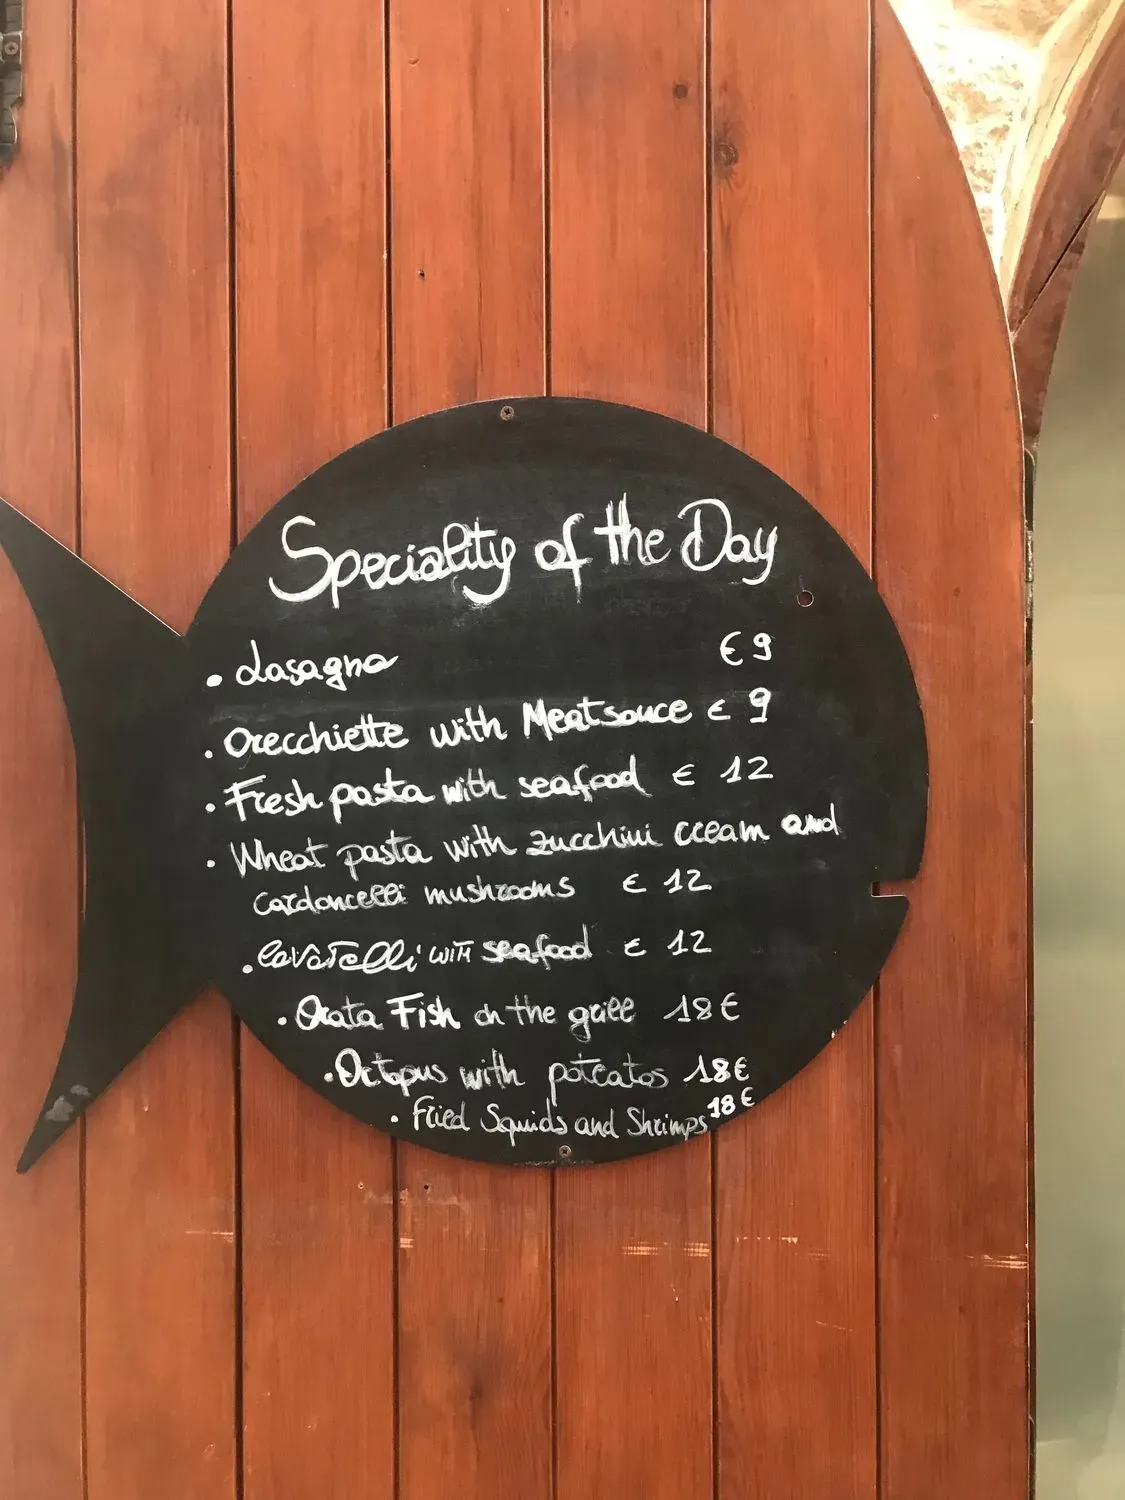 Speciality of the Day
• Lasagna € 9
• Orecchiette with Meatsauce € 9
• Fresh pasta with seafood € 12
• Wheat pasta with zucchini cream and
cardoncelli mushrooms € 12
• Cavatelli with seafood € 12
• Orata Fish on the grill 18€
• Octopus with poteatos 18€
• Fried Squids and Shrimps 18€